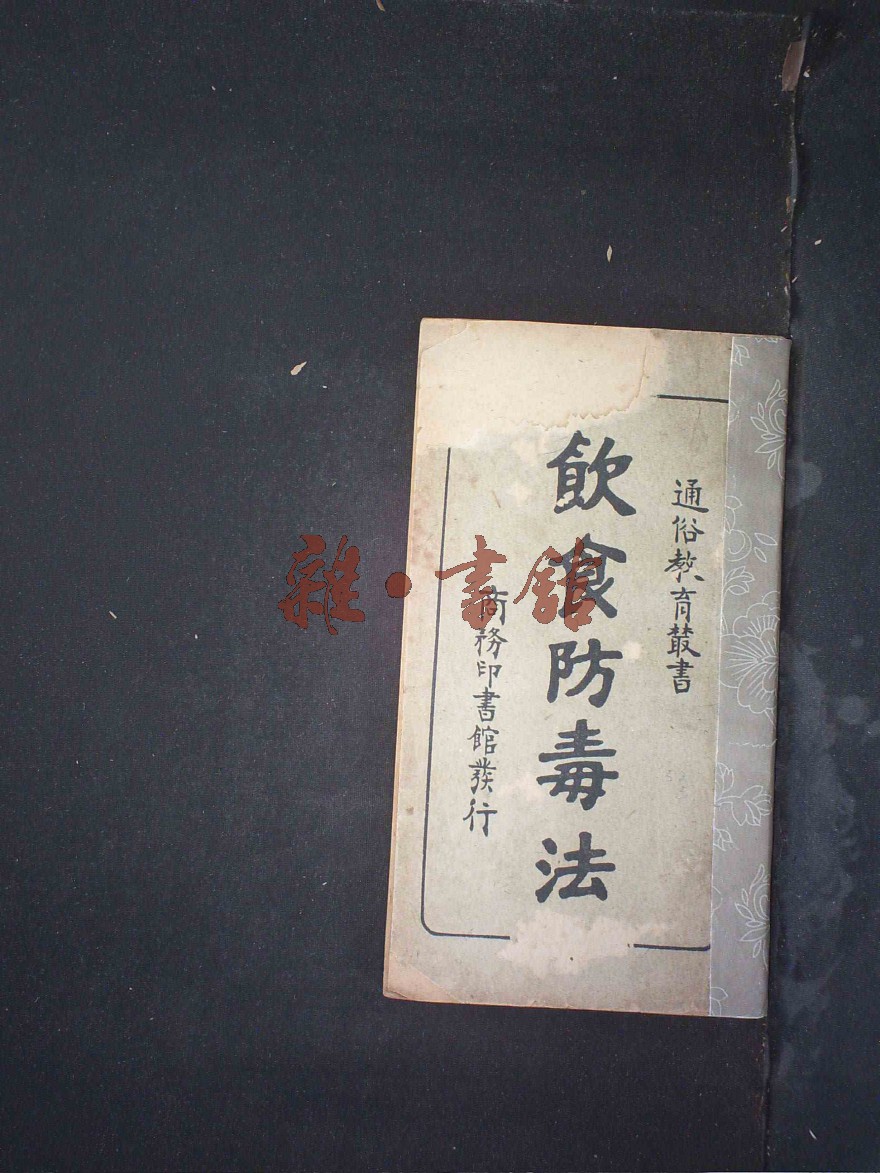 通俗教育叢書
飲食防毒法
商務印書館發行
雜·書館